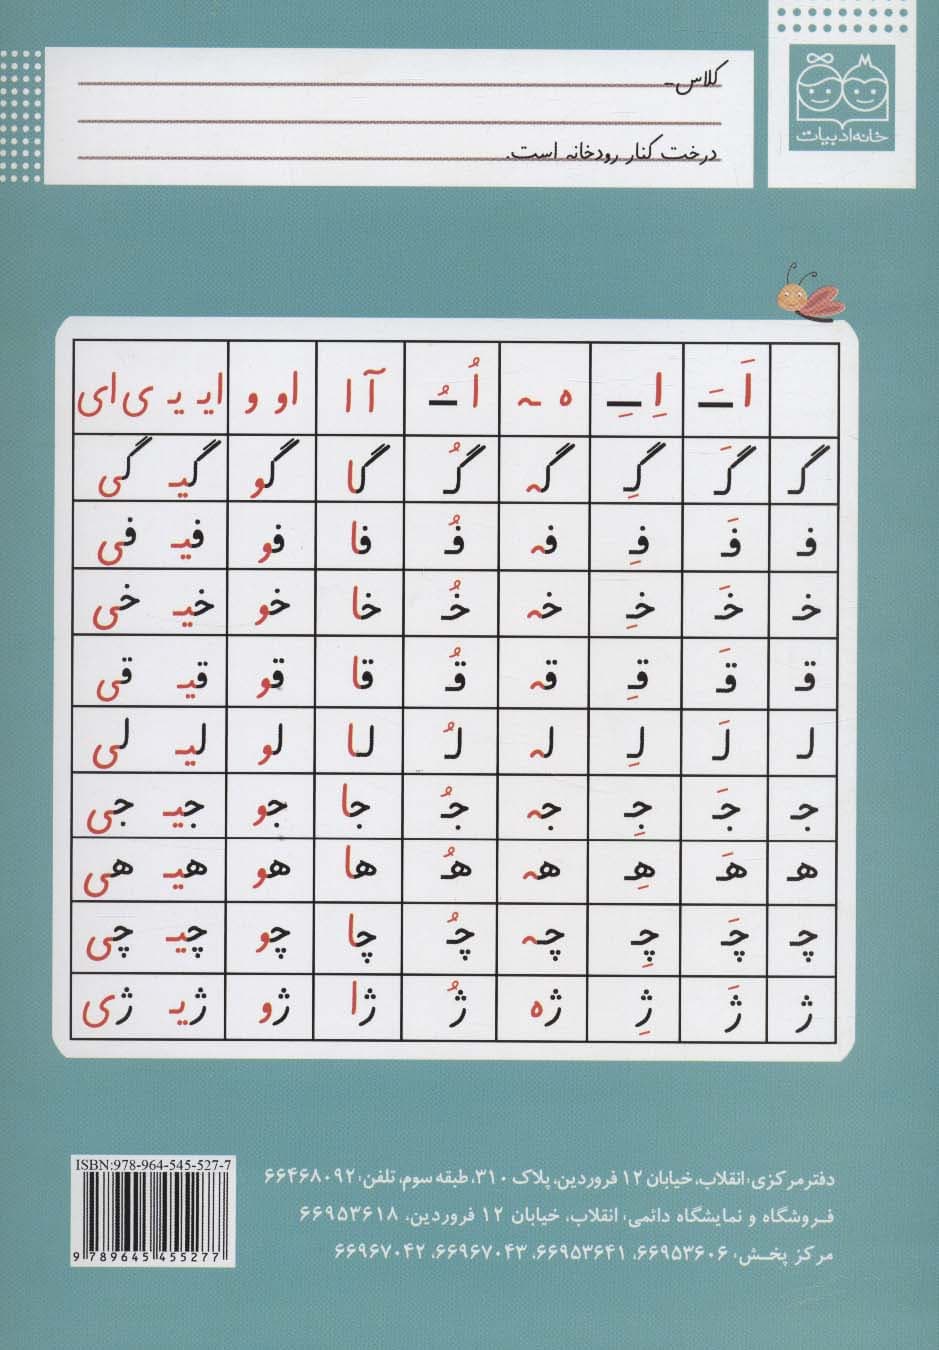 خانه ادبیات
کلاس
درخت کنار رودخانه است.
اَ ـَ اِ ـِ ه ـه اُ ـُ آ ا او و ایـ یـ ی ای
گ گَ گِ گه گُ گا گو گیـ گی
فـ فَـ فِـ فه فُـ فا فو فیـ فی
خـ خَـ خِـ خه خُـ خا خو خیـ خی
قـ قَـ قِـ قه قُـ قا قو قیـ قی
لـ لَـ لِـ له لُـ لا لو لیـ لی
جـ جَـ جِـ جه جُـ جا جو جیـ جی
هـ هَـ هِـ هه هُـ ها هو هیـ هی
چـ چَـ چِـ چه چُـ چا چو چیـ چی
ژ ژَ ژِ ژه ژُ ژا ژو ژیـ ژی
دفتر مرکزی: انقلاب، خیابان ۱۲ فروردین، پلاک ۳۱۰، طبقه سوم، تلفن: ۶۶۴۶۸۰۹۲
فروشگاه و نمایشگاه دائمی: انقلاب، خیابان ۱۲ فروردین، ۶۶۹۵۳۶۱۸
مرکز پخش: ۶۶۹۵۳۶۰۶، ۶۶۹۵۳۶۴۱، ۶۶۹۶۷۰۴۳، ۶۶۹۶۷۰۴۲
ISBN:978-964-545-527-7
9 789645 455277